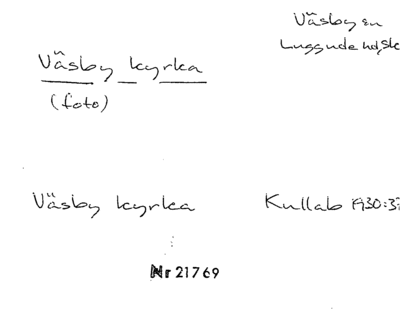 Väsby sn
Luggude hd, Sk
Väsby kyrka
(foto)
Väsby kyrka
Kullab 1930:37
Nr 21769